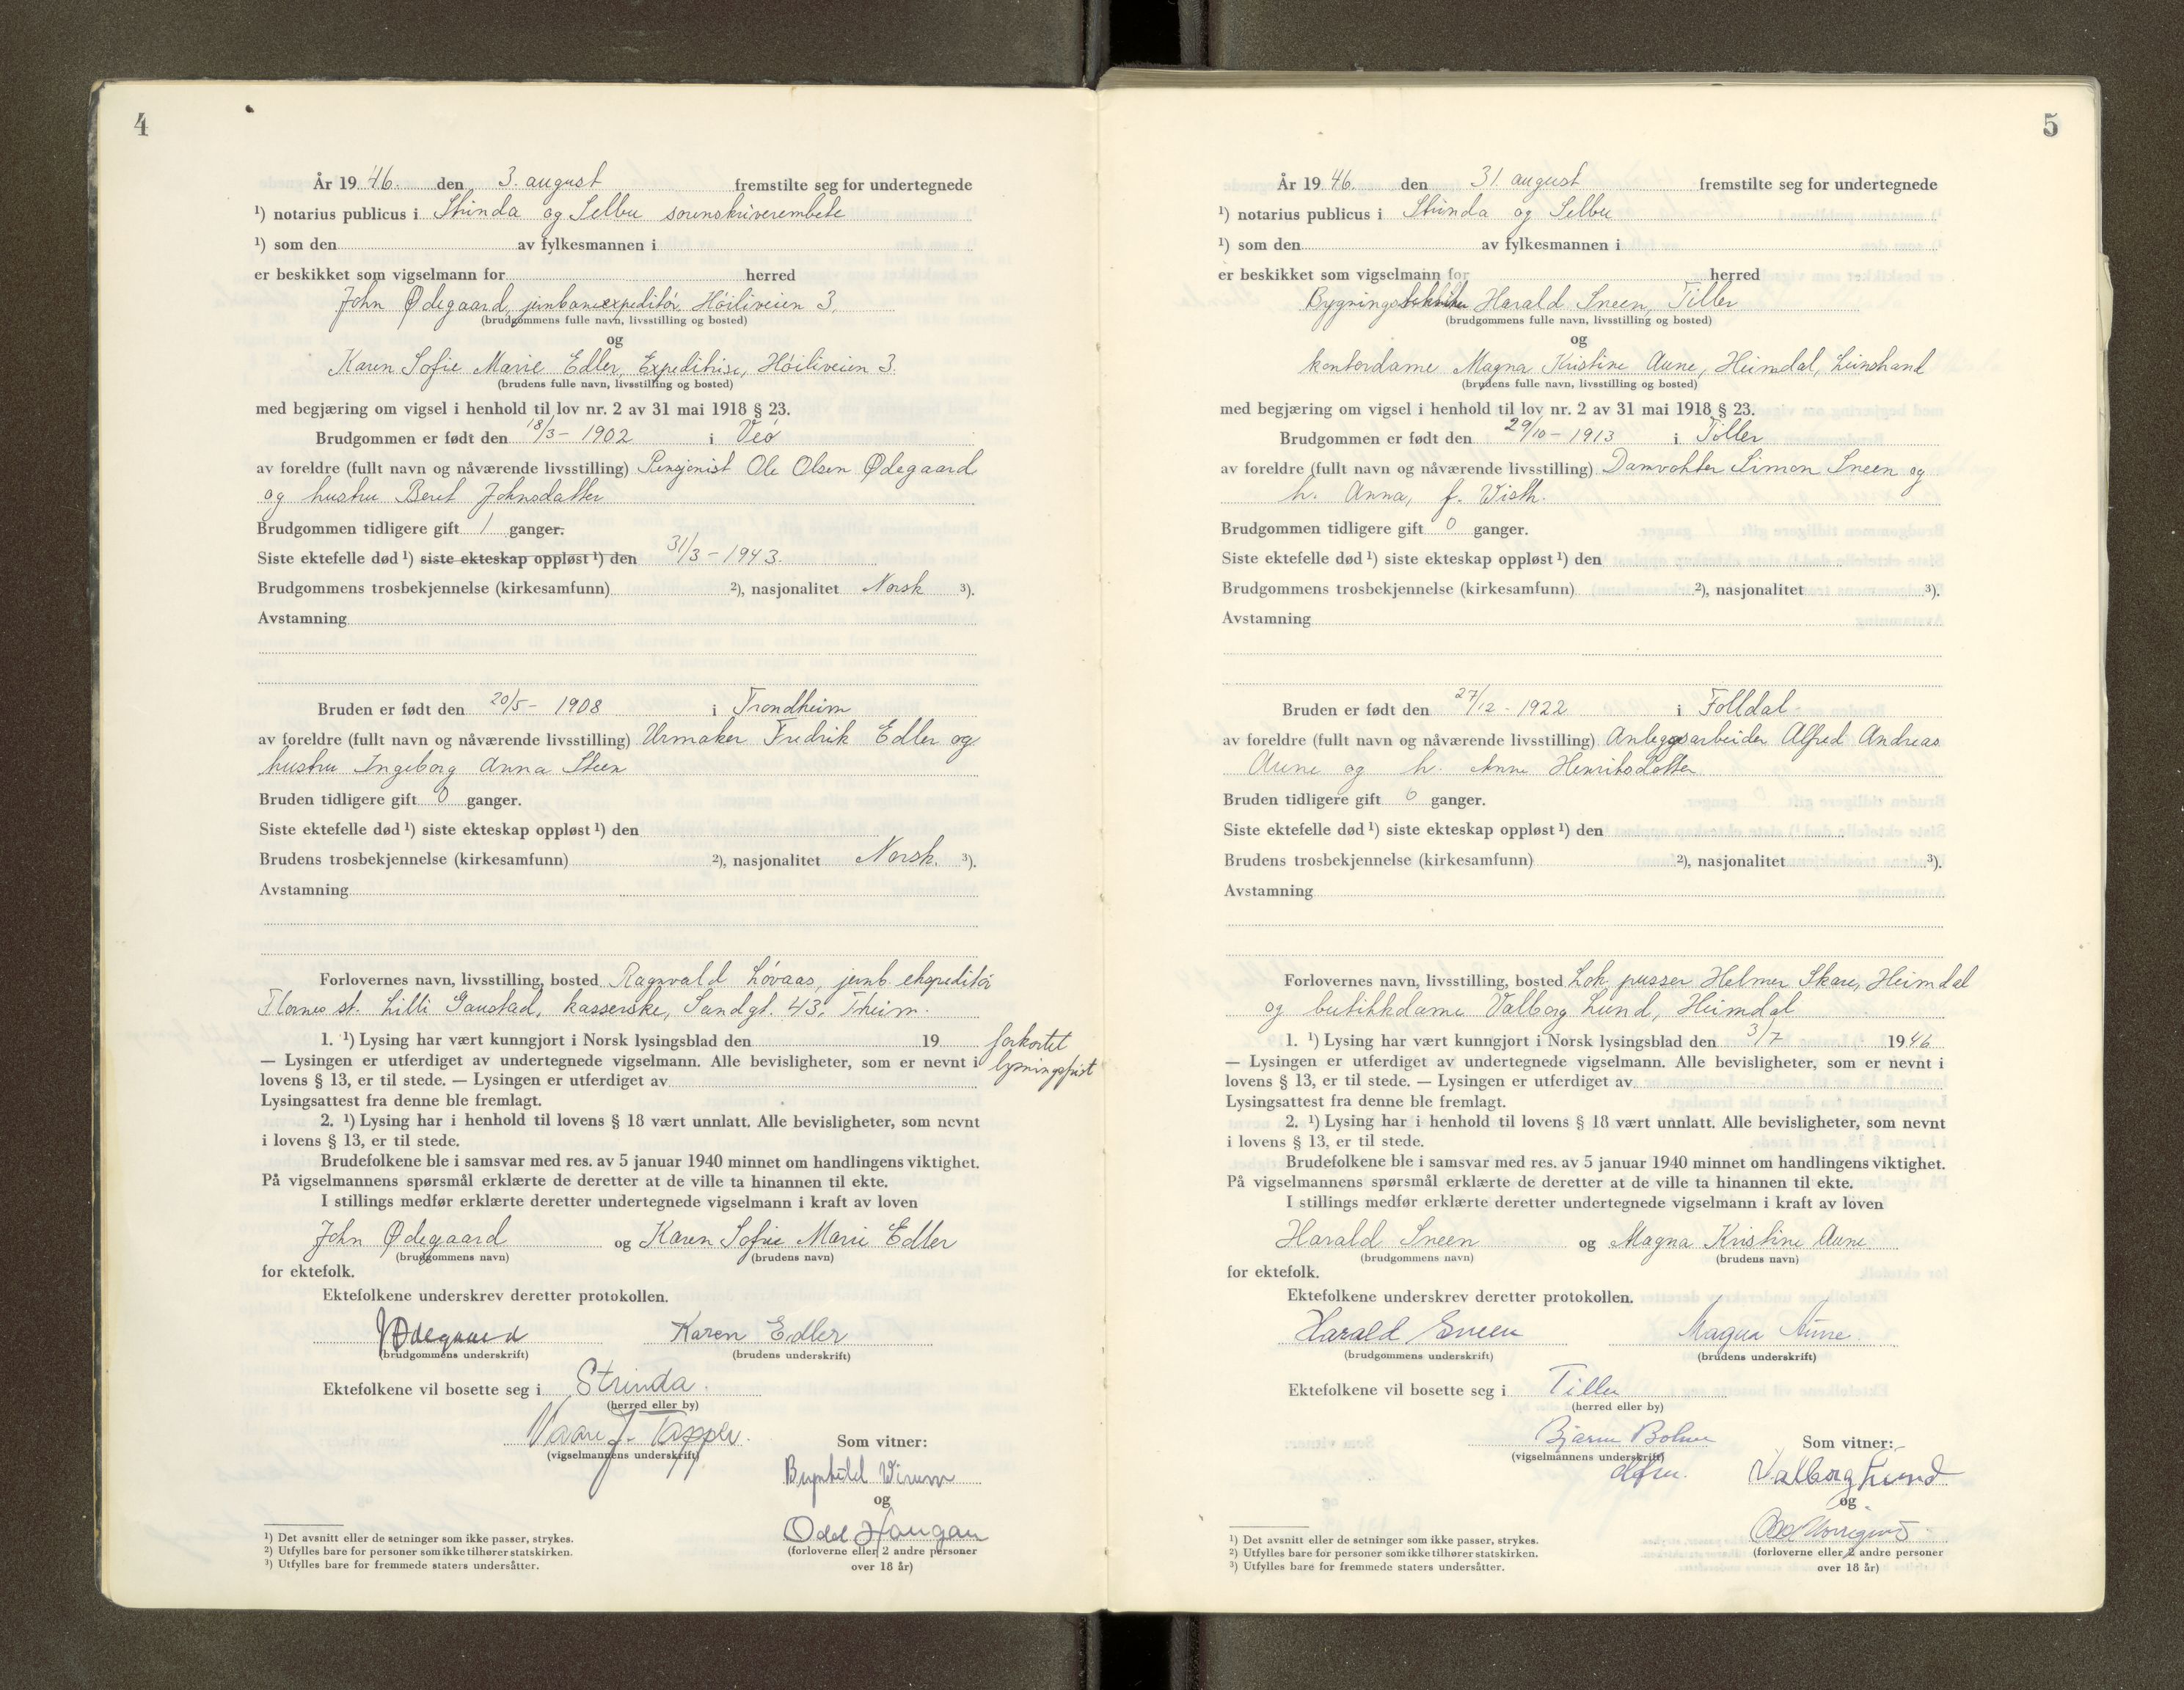 4
År 19 46. den 3. august fremstilte seg for undertegnede
¹) notarius publicus i Strinda og Selbu sorenskriverembete
¹) som den av fylkesmannen i
er beskikket som vigselmann for herred
John Ødegaard, jernbaneexpeditør, Høiliveien 3.
(brudgommens fulle navn, livsstilling og bosted)
og
Karen Sofie Marie Edler, Expeditrise, Høiliveien 3.
(brudens fulle navn, livsstilling og bosted)
med begjæring om vigsel i henhold til lov nr. 2 av 31 mai 1918 § 23.
Brudgommen er født den 18/3 - 1902 i Veø
av foreldre (fullt navn og nåværende livsstilling) Pensjonist Ole Olsen Ødegaard
og hustru Beret Johnsdatter
Brudgommen tidligere gift 1 ganger.
Siste ektefelle død ¹) siste ekteskap oppløst ¹) den 31/3 - 1943.
Brudgommens trosbekjennelse (kirkesamfunn) ²), nasjonalitet Norsk ³).
Avstamning
Bruden er født den 20/5 - 1908 i Trondheim
av foreldre (fullt navn og nåværende livsstilling) Urmaker Fredrik Edler og
hustru Ingeborg Anna Steen
Bruden tidligere gift 0 ganger.
Siste ektefelle død ¹) siste ekteskap oppløst ¹) den
Brudens trosbekjennelse (kirkesamfunn) ²), nasjonalitet Norsk. ³).
Avstamning
Forlovernes navn, livsstilling, bosted Ragnvald Løvaas, jernb. ekspeditør
Flornes st. Lilli Gaustad, kasserske, Sandgt. 43, Theim.
1. ¹) Lysing har vært kunngjort i Norsk lysingsblad den 19 forkortet
— Lysingen er utferdiget av undertegnede vigselmann. Alle bevisligheter, som er nevnt i lysningsfrist
lovens § 13, er til stede. — Lysingen er utferdiget av
Lysingsattest fra denne ble fremlagt.
2. ¹) Lysing har i henhold til lovens § 18 vært unnlatt. Alle bevisligheter, som nevnt
i lovens § 13, er til stede.
Brudefolkene ble i samsvar med res. av 5 januar 1940 minnet om handlingens viktighet.
På vigselmannens spørsmål erklærte de deretter at de ville ta hinannen til ekte.
I stillings medfør erklærte deretter undertegnede vigselmann i kraft av loven
John Ødegaard og Karen Sofie Marie Edler
(brudgommens navn) (brudens navn)
for ektefolk.
Ektefolkene underskrev deretter protokollen.
JØdegaard Karen Edler
(brudgommens underskrift) (brudens underskrift)
Ektefolkene vil bosette seg i Strinda.
(herred eller by)
J. Tapper.
(vigselmannens underskrift)
Som vitner:
Brynhild
og
Odd Haugan
(forloverne eller 2 andre personer
over 18 år)
¹) Det avsnitt eller de setninger som ikke passer, strykes.
²) Utfylles bare for personer som ikke tilhører statskirken.
³) Utfylles bare for fremmede staters undersåtter.
5
År 19 46. den 31. august fremstilte seg for undertegnede
¹) notarius publicus i Strinda og Selbu
¹) som den av fylkesmannen i
er beskikket som vigselmann for herred
Bygningstekniker Harald Sneen, Tiller
(brudgommens fulle navn, livsstilling og bosted)
og
kontordame Magna Kristine Aune, Heimdal, Leinstrand
(brudens fulle navn, livsstilling og bosted)
med begjæring om vigsel i henhold til lov nr. 2 av 31 mai 1918 § 23.
Brudgommen er født den 29/10 - 1913 i Tiller
av foreldre (fullt navn og nåværende livsstilling) Damvokter Simon Sneen og
h. Anna, f. Wisth.
Brudgommen tidligere gift 0 ganger.
Siste ektefelle død ¹) siste ekteskap oppløst ¹) den
Brudgommens trosbekjennelse (kirkesamfunn) ²), nasjonalitet ³).
Avstamning
Bruden er født den 27/12 - 1922 i Folldal
av foreldre (fullt navn og nåværende livsstilling) Anleggsarbeider Alfred Andreas
Aune og h. Anne Henriksdatter
Bruden tidligere gift 0 ganger.
Siste ektefelle død ¹) siste ekteskap oppløst ¹) den
Brudens trosbekjennelse (kirkesamfunn) ²), nasjonalitet ³).
Avstamning
Forlovernes navn, livsstilling, bosted Lok. pusser Helmer Skare, Heimdal
og butikkdame Valborg Lund, Heimdal
1. ¹) Lysing har vært kunngjort i Norsk lysingsblad den 3/7 1946
— Lysingen er utferdiget av undertegnede vigselmann. Alle bevisligheter, som er nevnt i
lovens § 13, er til stede. — Lysingen er utferdiget av
Lysingsattest fra denne ble fremlagt.
2. ¹) Lysing har i henhold til lovens § 18 vært unnlatt. Alle bevisligheter, som nevnt
i lovens § 13, er til stede.
Brudefolkene ble i samsvar med res. av 5 januar 1940 minnet om handlingens viktighet.
På vigselmannens spørsmål erklærte de deretter at de ville ta hinannen til ekte.
I stillings medfør erklærte deretter undertegnede vigselmann i kraft av loven
Harald Sneen og Magna Kristine Aune
(brudgommens navn) (brudens navn)
for ektefolk.
Ektefolkene underskrev deretter protokollen.
Harald Sneen Magna Aune.
(brudgommens underskrift) (brudens underskrift)
Ektefolkene vil bosette seg i Tiller
(herred eller by)
Bjarne
(vigselmannens underskrift)
Som vitner:
Valborg Lund
og
(forloverne eller 2 andre personer
over 18 år)
¹) Det avsnitt eller de setninger som ikke passer, strykes.
²) Utfylles bare for personer som ikke tilhører statskirken.
³) Utfylles bare for fremmede staters undersåtter.